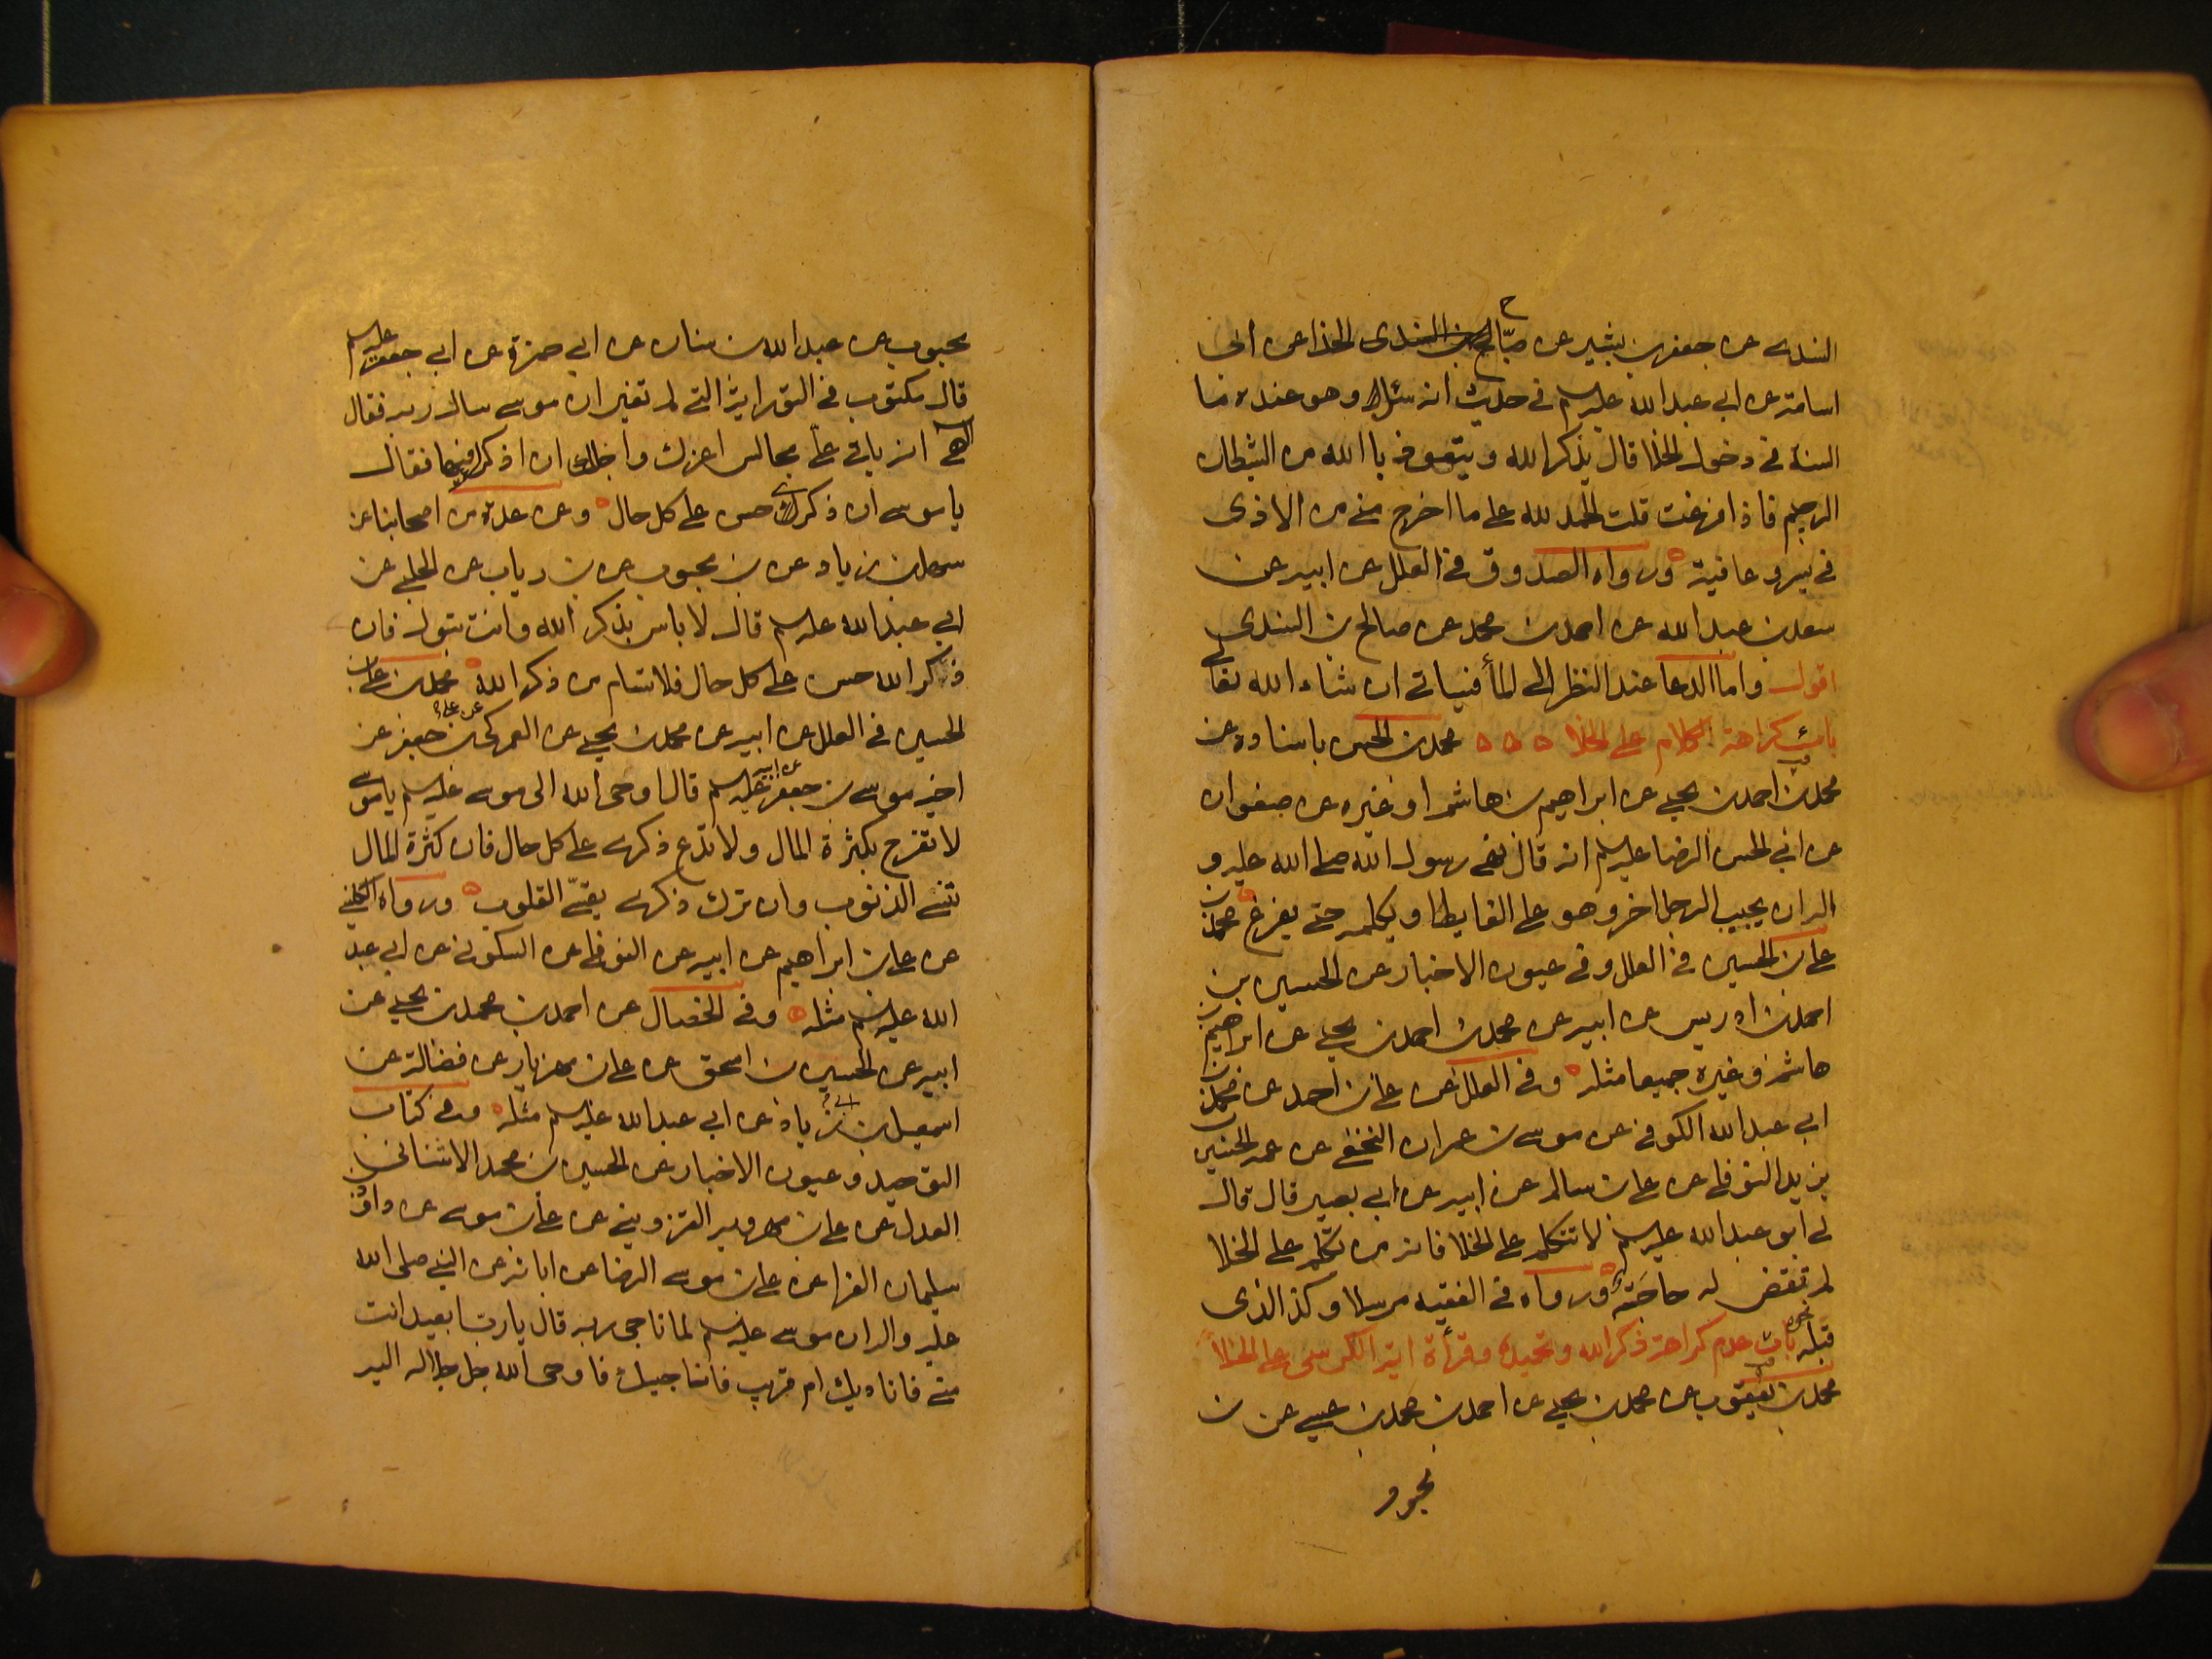 السندي عن جعفر بن بشير عن صباح الحذا عن ابي
اسامة عن ابي عبد الله عليه السلم في حديث انه سئل وهو عنده ما
السنة في دخول الخلا قال يذكر الله ويتعوذ بالله من الشيطان
الرجيم فاذا فرغت قلت الحمد لله على ما اخرج مني من الاذى
في يسر وعافية ورواه الصدوق في العلل عن ابيه عن
سعد بن عبد الله عن احمد بن محمد عن صالح بن السندي
اقول واما الدعا عند النظر الى الماء فسياتي ان شاء الله تعالى
باب كراهة الكلام على الخلا محمد بن الحسن باسناده عن
محمد بن احمد بن يحيى عن ابراهيم بن هاشم او غيره عن صفوان
عن ابي الحسن الرضا عليه السلم انه قال نهى رسول الله صلى الله عليه و
اله ان يجيب الرجل اخر وهو على الغايط او يكلمه حتى يفرغ محمد بن
علي بن الحسين في العلل وفي عيون الاخبار عن الحسين بن
احمد بن ادريس عن ابيه عن محمد بن احمد بن يحيى عن ابراهيم بن
هاشم وغيره جميعا مثله وفي العلل عن علي بن احمد عن محمد بن
ابي عبد الله الكوفي عن موسى بن عمران النخعي عن عمه الحسين بن
يزيد النوفلي عن علي بن سالم عن ابيه عن ابي بصير قال قال
لي ابو عبد الله عليه السلم لا تتكلم على الخلا فانه من تكلم على الخلا
لم تقض له حاجته ورواه في الفقيه مرسلا وكذا الذي
قبله نحوه باب عدم كراهة ذكر الله وتحميده وقرأة اية الكرسي على الخلا
محمد بن يعقوب عن محمد بن يحيى عن احمد بن محمد بن عيسى عن بن
محبوب
محبوب عن عبد الله بن سنان عن ابي حمزة عن ابي جعفر عليه السلم
قال مكتوب في التوراية التي لم تغير ان موسى سال ربه فقال
الهي انه ياتي علي مجالس اعزك واجلك ان اذكرك فيها فقال
يا موسى ان ذكري حسن على كل حال وعن عدة من اصحابنا عن
سهل بن زياد عن بن محبوب عن بن رياب عن الحلبي عن
ابي عبد الله عليه السلم قال لا باس بذكر الله وانت تبول فان
ذكر الله حسن على كل حال فلا تسام من ذكر الله محمد بن علي بن
الحسين في العلل عن ابيه عن محمد بن يحيى عن العمركي عن علي بن جعفر عن
اخيه موسى بن جعفر عن ابيه عليه السلم قال اوحى الله الى موسى عليه السلم يا موسى
لا تفرح بكثرة المال ولا تدع ذكري على كل حال فان كثرة المال
تنسي الذنوب وان ترك ذكري يقسي القلوب ورواه الكليني
عن علي بن ابراهيم عن ابيه عن النوفلي عن السكوني عن ابي عبد
الله عليه السلم مثله وفي الخصال عن احمد بن محمد بن يحيى عن
ابيه عن الحسين بن اسحق عن علي بن مهزيار عن فضالة عن
اسمعيل بن ابي زياد عن ابي عبد الله عليه السلم مثله وفي كتاب
التوحيد وعيون الاخبار عن الحسين بن محمد الاشناني
العدل عن علي بن مهرويه القزويني عن علي بن موسى عن داود بن
سليمان الفرا عن علي بن موسى الرضا عن ابائه عن النبي صلى الله
عليه واله ان موسى عليه السلم لما ناجى ربه قال يا رب ابعيد انت
مني فاناديك ام قريب فاناجيك فاوحى الله جل جلاله اليه